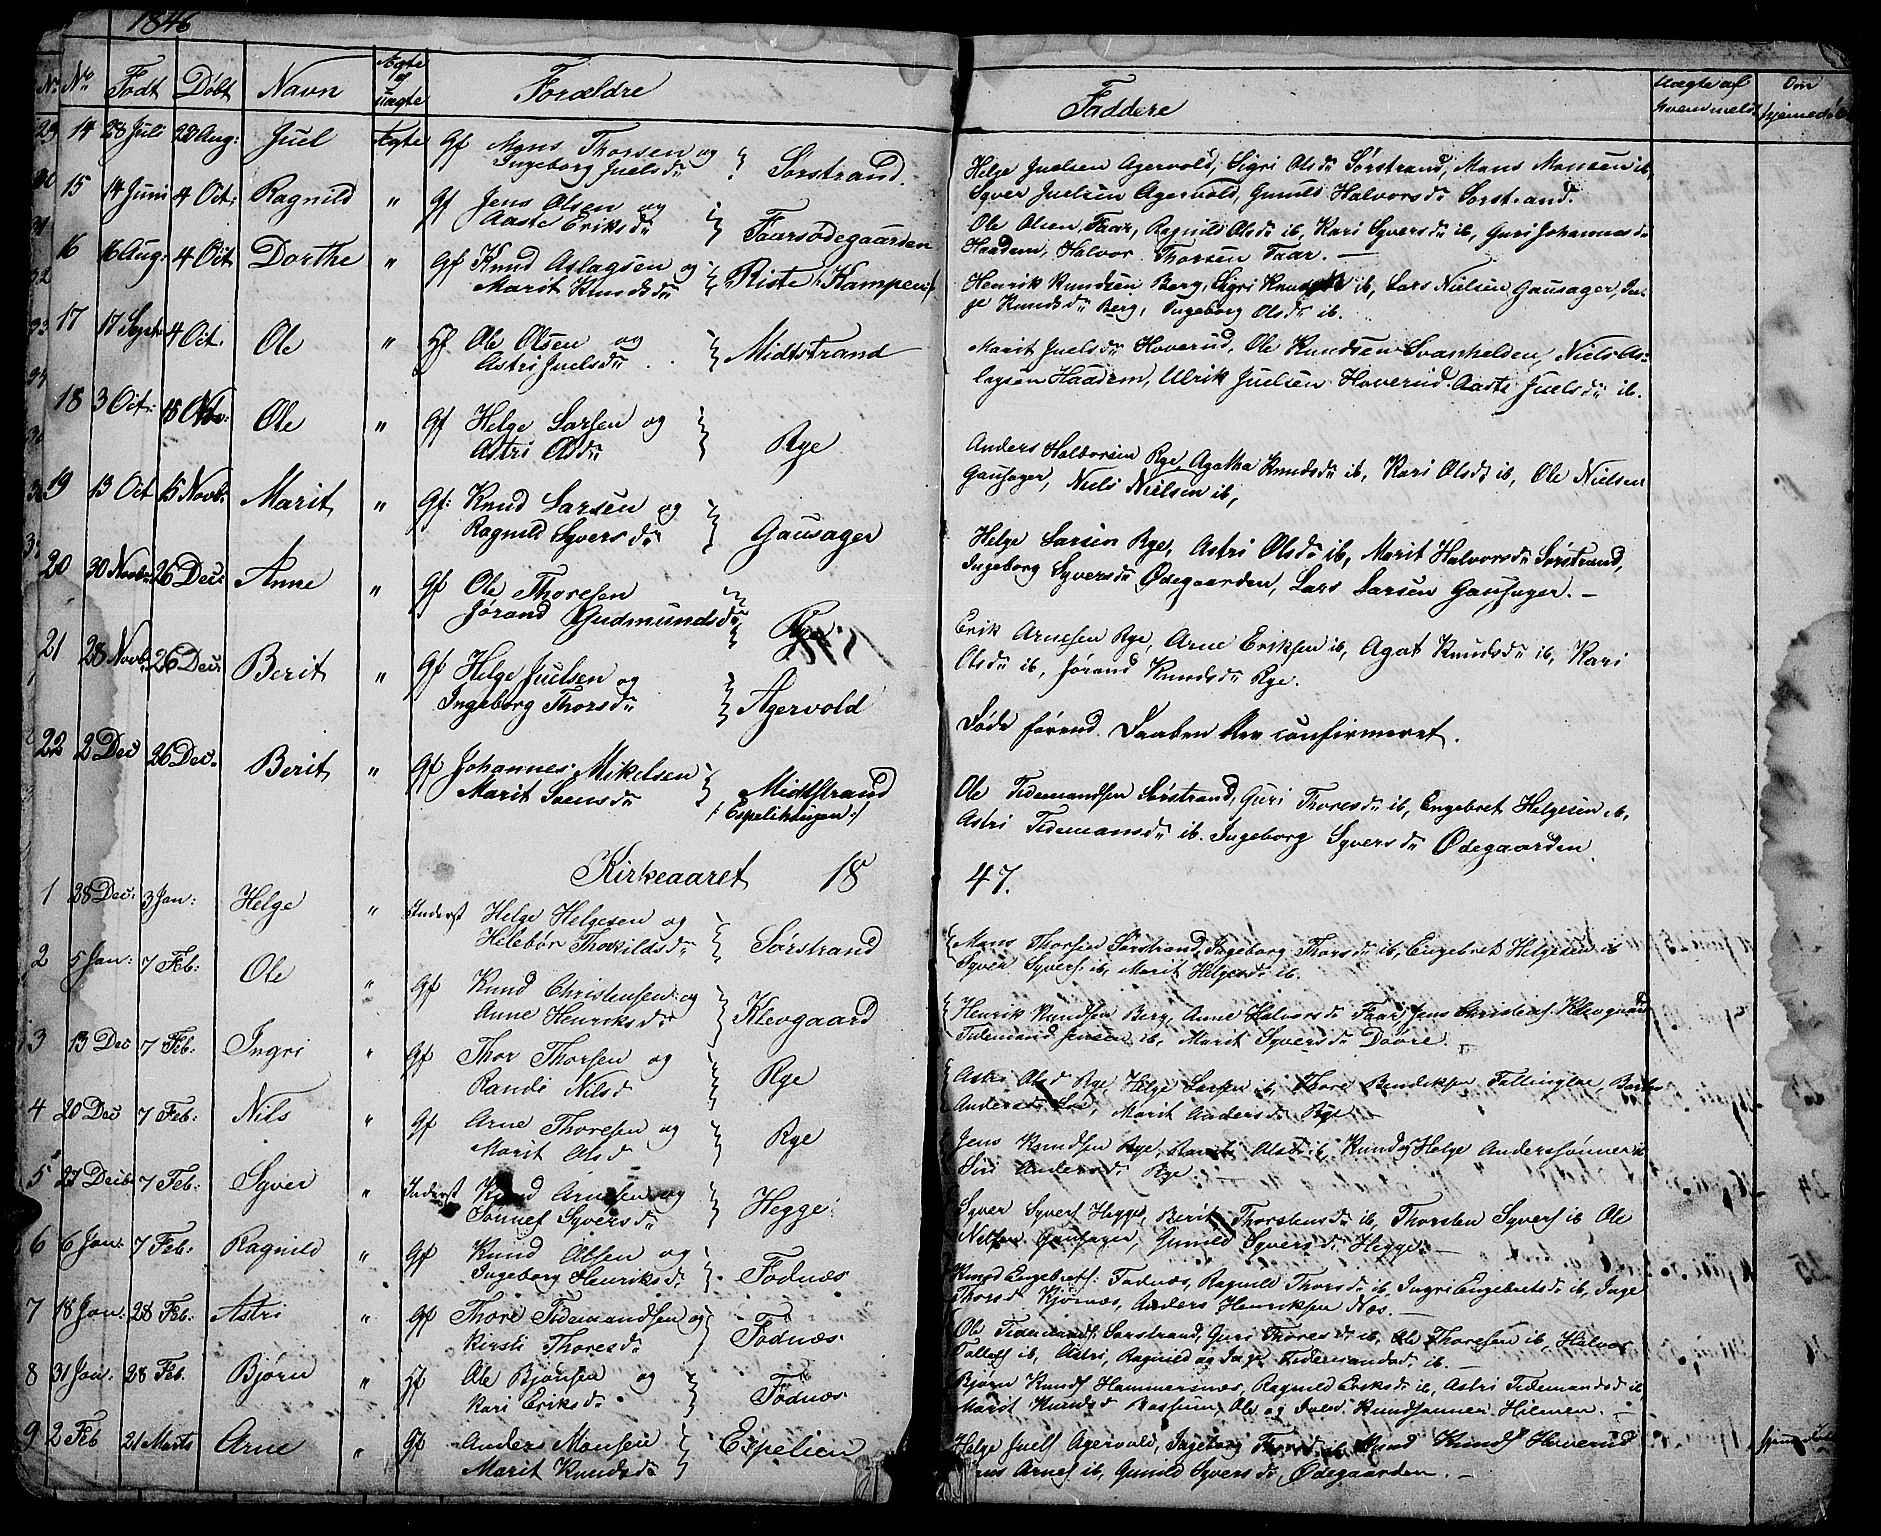 1846
No No Født Døbt Navn Ægte el uægte Forældre Faddere Uægte af hvem meldt Om hjemmedøbt
29 14 28 Juli 23 Aug: Juel Ægte Gf Mons Thorsen og Ingeborg Juelsdr Sørstrand.
Helge Juelsen Agervold, Sigri Olsdr Sørstrand, Mons Monsen ib,
Syver Juelsen Agervold, Gunild Halvorsdr Sørstrand.
30 15 14 Juni 4 Oct: Ragnild " Gf Jens Olsen og Aaste Eriksdr Faarsødegaarden
Ole Olsen Faar, Ragnild Olsdr ib, Kari Syversdr ib, Guri Johannesdr
Haadem, Halvor Thorsen Faar. —
31 16 16 Aug: 4 Oct Dorthe " Gf Knud Aslagsen og Marit Knudsdr Riste (Kampen)
Henrik Knudsen Berg, Sigri Knudsdr ib, Lars Nielsen Gausager, In-
ge Knudsdr Berg, Ingeborg Olsdr ib.
32 17 17 Septr 4 Oct. Ole " Gf Ole Olsen og Astri Juelsdr Midtstrand
Marit Juelsdr Hoverud, Ole Knudsen Svanhelden, Niels As-
lagsen Haadem, Ulrik Juelsen Hoverud, Aaste Juelsdr ib.
18 3 Oct: 15 Nov: Ole " Gf Helge Larsen og Astri Olsdr Rye
Anders Halvorsen Rye, Agatha Knudsdr ib, Kari Olsdr ib, Ole Nielsen
Gausager, Niels Nielsen ib,
19 13 Oct 15 Novb: Marit " Gf: Knud Larsen og Ragnild Syversdr Gausager
Helge Larsen Rye, Astri Olsdr ib, Marit Halvorsdr Sørstrand,
Ingeborg Syversdr Ødegaarden, Lars Larsen Gausager. —
20 30 Novb: 26 Dec: Anne " Gf Ole Thoresen Jørand Gudmundsdr Rye
Erik Arnesen Rye, Arne Eriksen ib, Agat Knudsdr ib, Kari
Olsdr ib, Jørand Knudsdr Rye.
21 28 Novb: 26 Dec: Berit " Gf Helge Juelsen og Ingeborg Thorsdr Agervold
Døde førend Daaben blev confirmeret.
22 2 Dec 26 Dec. Berit " Gf Johannes Mikelsen Marit Svensdr Midtstrand (Espeliktugen)
Ole Tidemandsen Sørstrand, Guri Thoresdr ib, Engebret Helgesen ib,
Astri Tidemansdr ib. Ingeborg Syversdr Ødegaarden.
Kirkeaaret 18 47.
1 28 Dec: 3 Jan: Helge " Inderst Helge Helgesen og Hilebør Thorkildsdr Sørstrand
Mons Thorsen Sørstrand, Ingeborg Thorsdr ib, Engebret Helgesen ib
Syver Syvers. ib, Marit Helgesdr ib.
2 5 Jan: 7 Feb: Ole " Gf Knud Christensen og Anne Henriksdr Klevgaard
Henrik Knudsen Berg, Anne Halvorsdr Faar, Jens Christens. Klevgaard
Tidemand Jensen ib, Marit Syversdr Døvre.
3 13 Dec 7 Feb: Ingri " Gf Thor Thorsen og Randi Nilsd Rye
Astri Olsd Rye, Helge Larsen ib, Thore Bendiksen
Andersd, Marit Andersdr Rye —
4 20 Dec 7 Feb: Nils " Gf Arne Thoresen og Marit Olsd Rye
Jens Knudsen Rye, Olsd ib, Knud og Helge Anderssønner ib
Siri Andersdr Rye.
5 27 Decb 7 Feb: Syver " Inderst Knud Arnesen og Sønnef Syversdr Hegge
Syver Syvers. Hegge, Berit Thorstensdr ib, Thorsten Syvers. ib Ole
Nilsen Gausager, Gunild Syversdr Hegge. —
6 6 Jan: 7 Feb: Ragnild " Gf Knud Olsen og Ingeborg Henriksdr Fodnæs
Knud Engebrets: Fodnæs, Ragnild Thorsdr ib, Ingri Engebretsdr ib, Inge
Thorsd Kjørnæs, Anders Henriksen Næs. —
7 18 Jan: 28 Feb: Astri " Gf Thore Tidemandsen og Kirsti Thoresdr Fodnæs
Ole Tidemands. Sørstrand, Guri Thoresdr ib, Ole Thoresen ib, Halvor
Tollefs. ib, Astri, Ragnild og Inge Tidemandsdr ib. —
8 31 Jan: 28 Feb. Bjørn " Gf Ole Bjørnsen og Kari Eriksdr Fodnæs
Bjørn Knuds. Hammersnæs, Ragnild Eriksdr ib, Astri Tidemandsd ib
Marit Knudsd, Ole og Iver Knudsønner Hilmen. —
9 2 Feb 21 Marts Arne " Gf Anders Monsen Marit Knudsdr Espelien
Helge Juels. Agervold, Ingeborg Thorsdr ib, Knud Knuds. Hoverud
Arnes. ib, Gunild Syversdr Ødegaarden. —